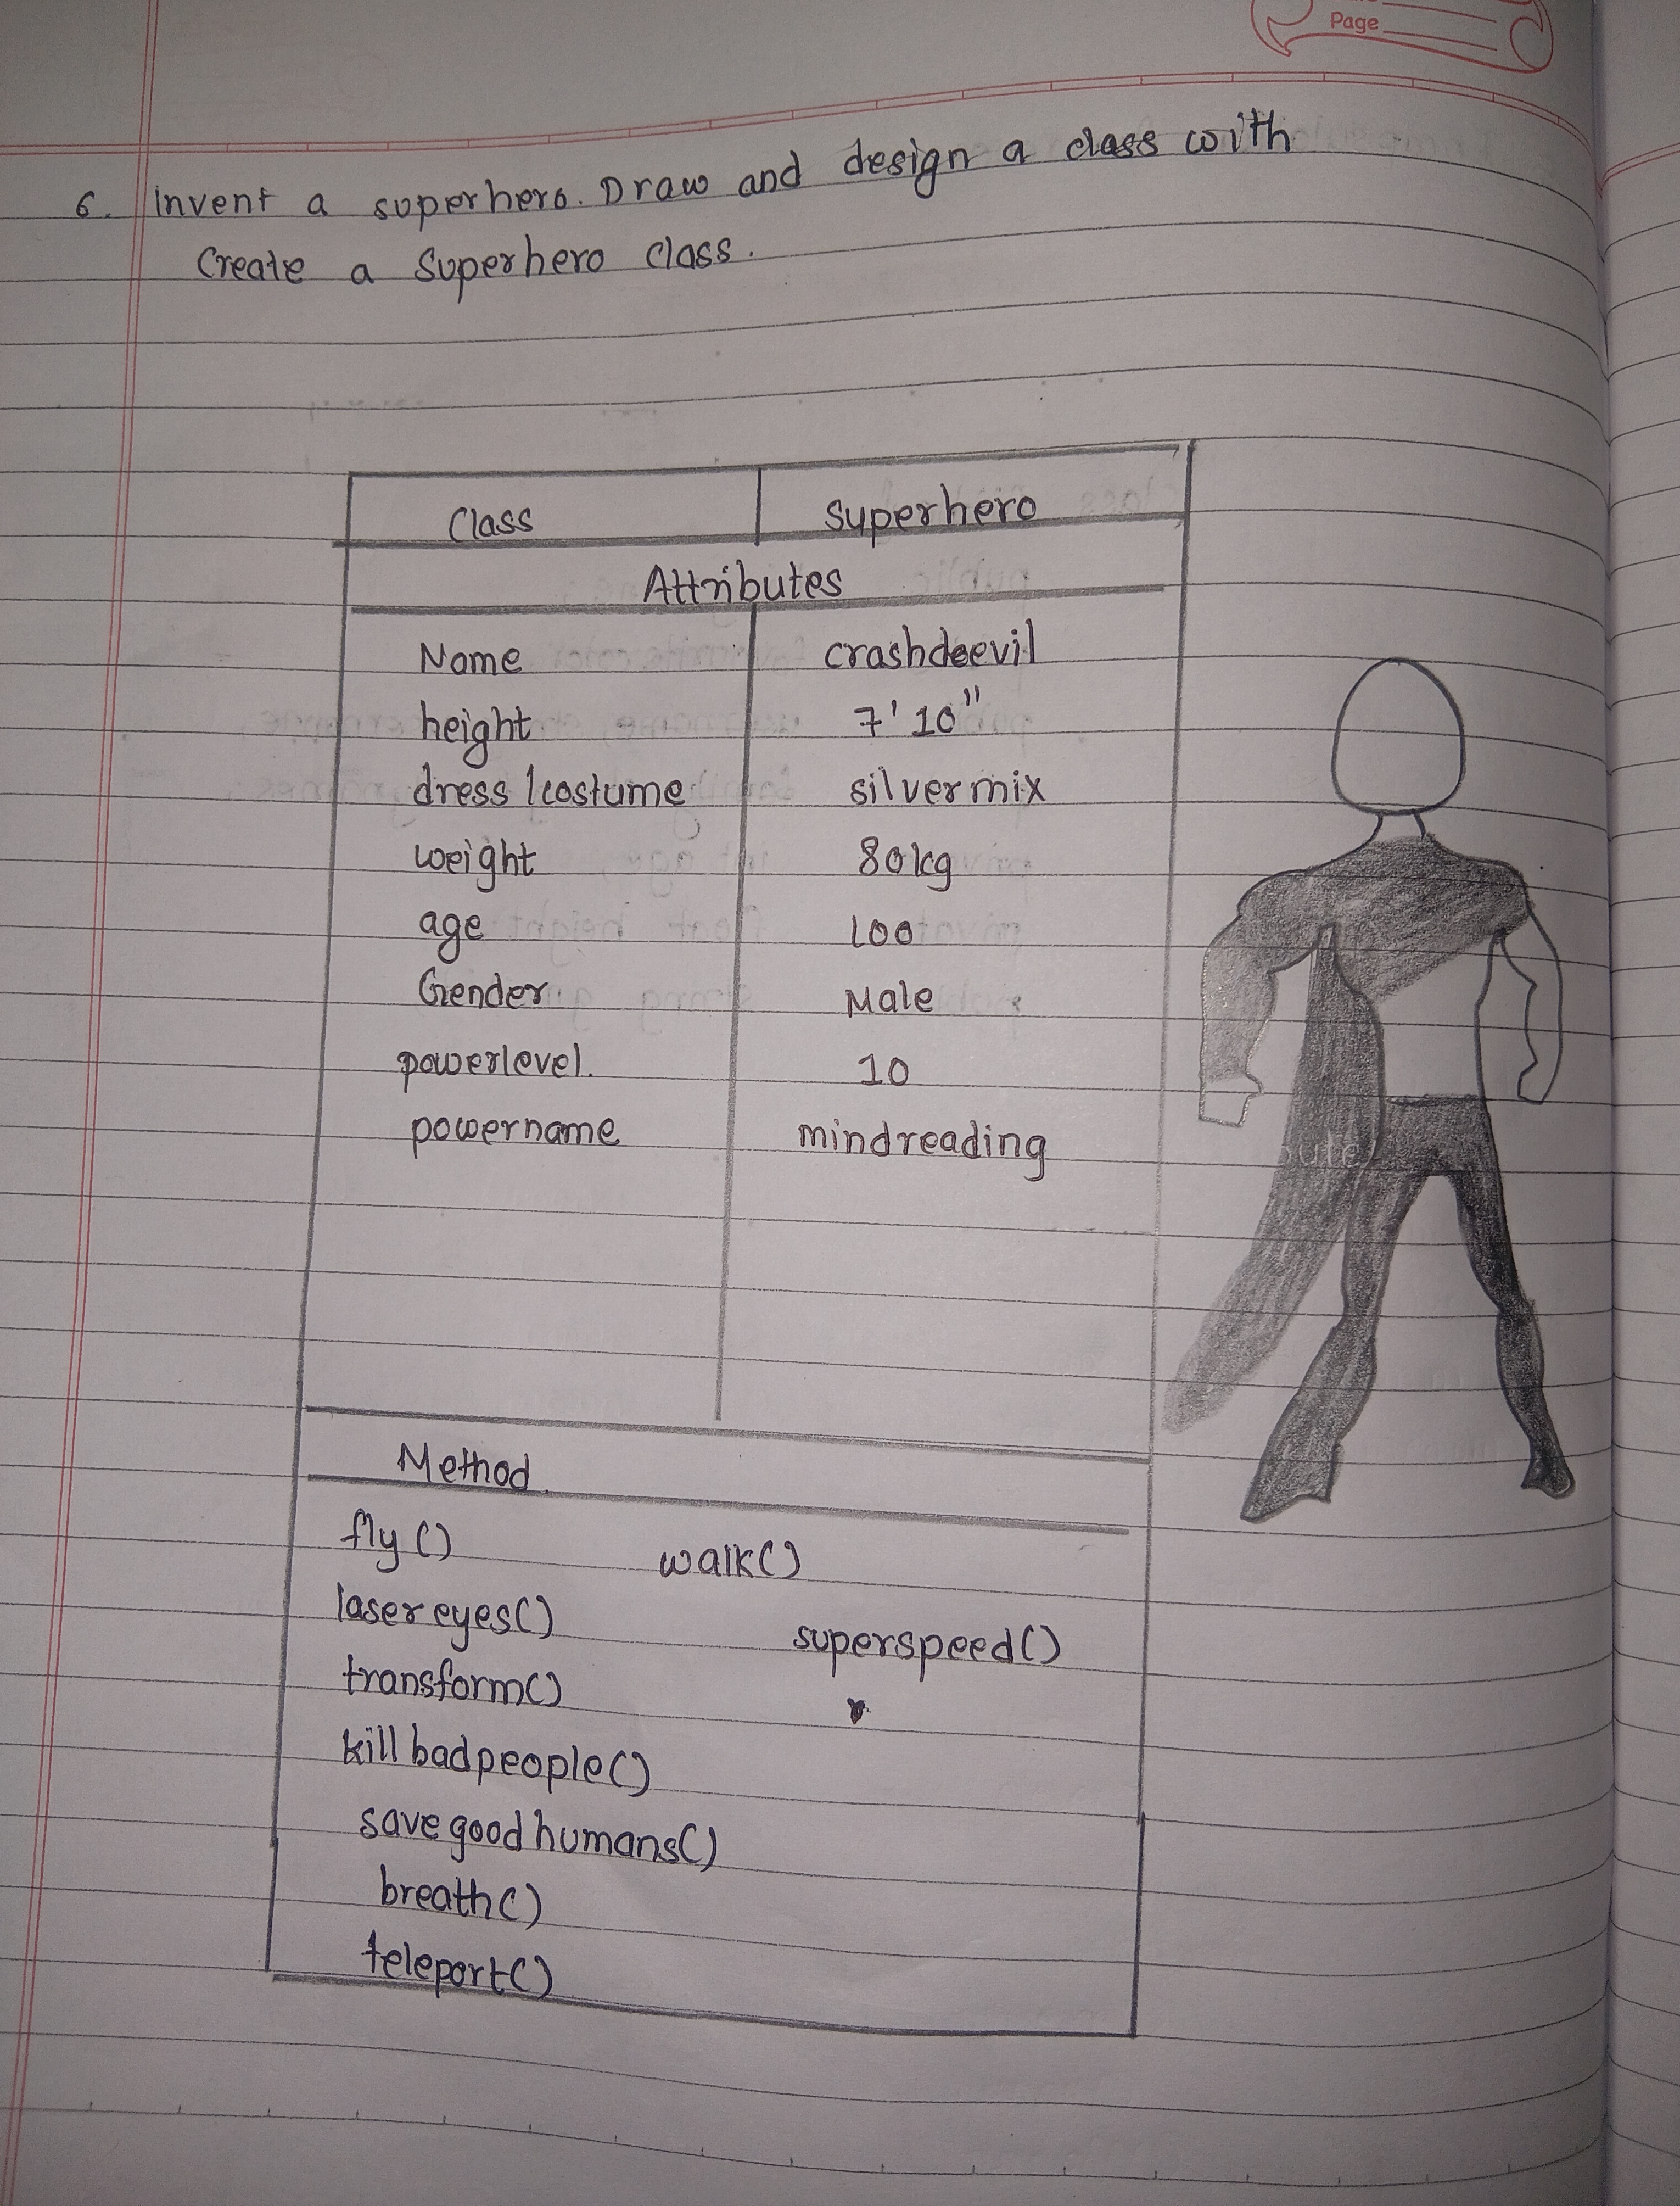 Page
6. Invent a superhero. Draw and design a class with
Create a Superhero class.
Class Superhero
Attributes
Name crashdeevil
height 7' 10"
dress/costume silvermix
weight 80kg
age 100
Gender Male
powerlevel. 10
powername mindreading
Method
fly() walk()
lasereyes() superspeed()
transform()
kill badpeople()
save good humans()
breath()
teleport()